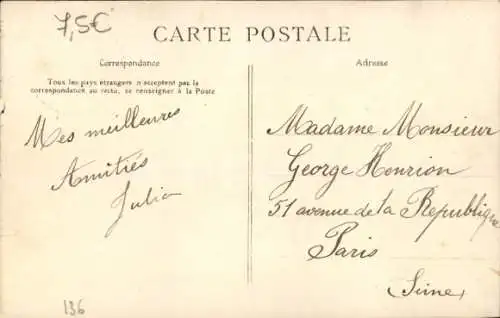 7,5€
CARTE POSTALE
Correspondance
Tous les pays étrangers n'acceptent pas la
correspondance au recto, se renseigner à la Poste
Mes meilleures
Amitiés
Julia
136
Adresse
Madame Monsieur
George Henrion
51 avenue de la République
Paris
Seine